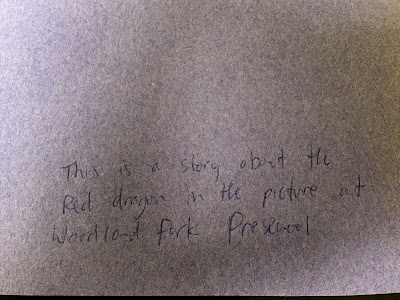 This is a story about the
Red dragon in the picture at
Woodland fork Preschool